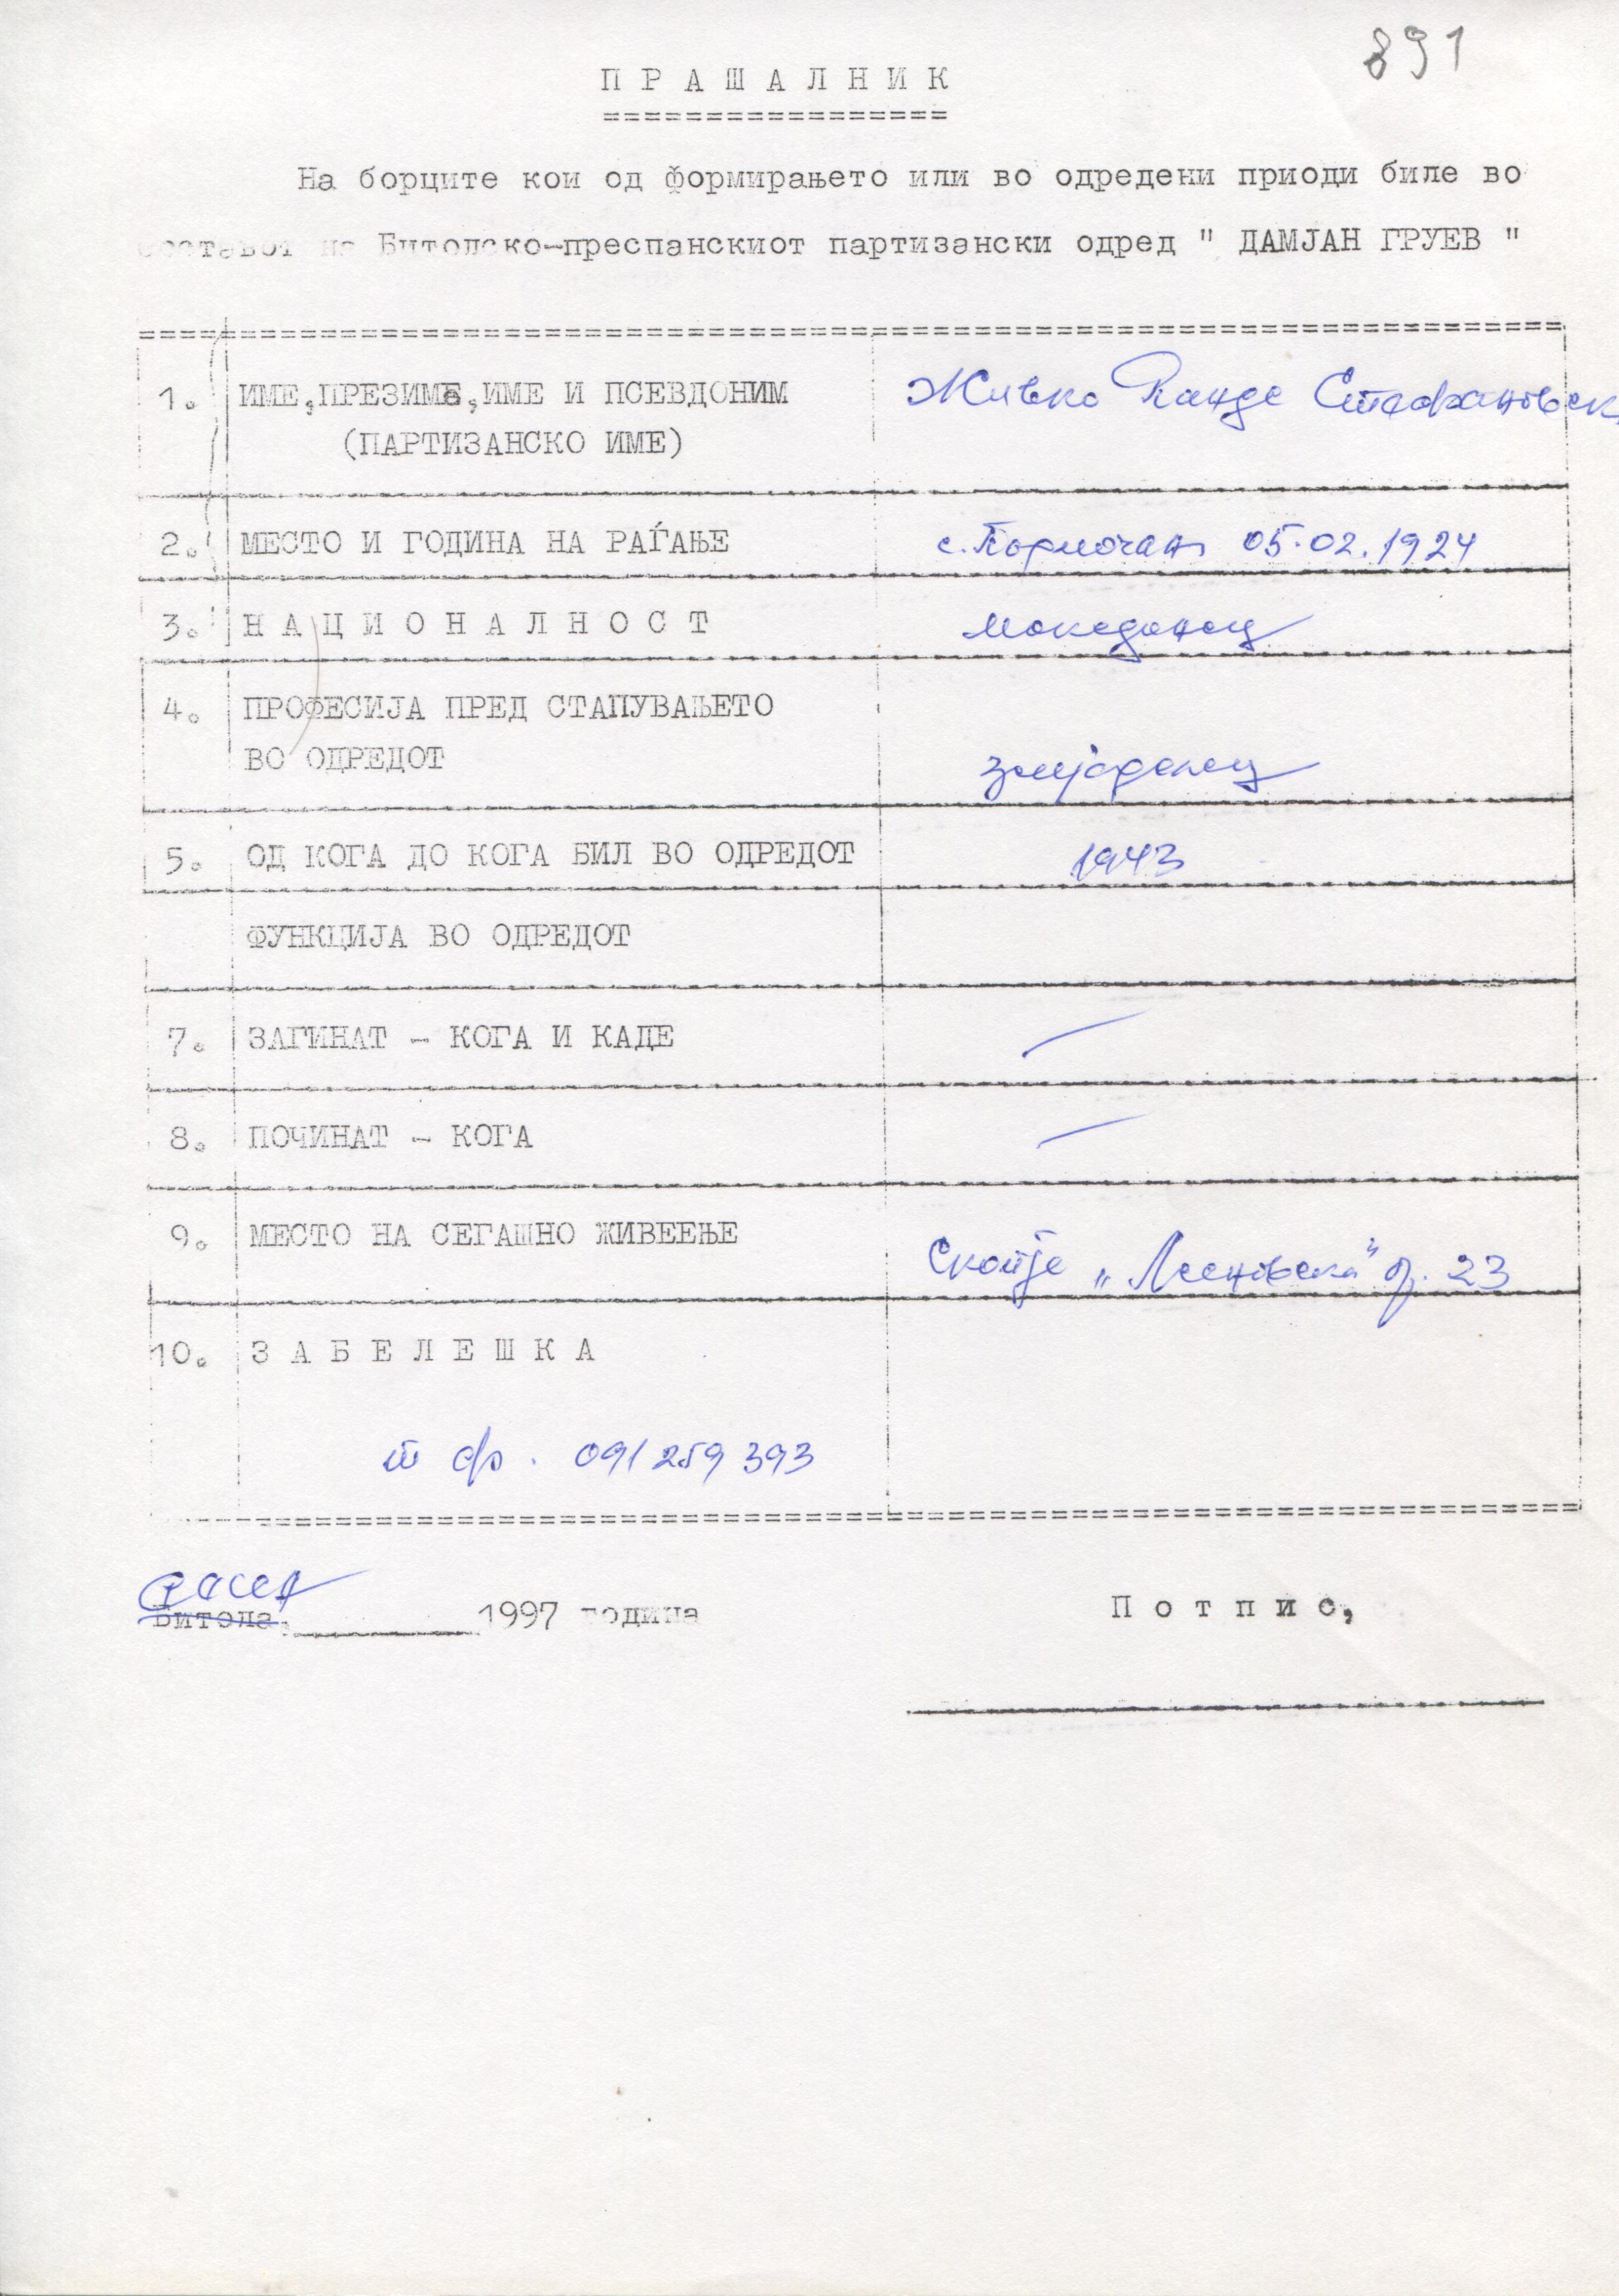 891
П Р А Ш А Л Н И К
На борците кои од формирањето или во одредени приоди биле во
составот на Битолско-преспанскиот партизански одред " ДАМЈАН ГРУЕВ "
1. ИМЕ, ПРЕЗИМЕ, ИМЕ И ПСЕВДОНИМ Живко Ранде Стефановск
(ПАРТИЗАНСКО ИМЕ)
2. МЕСТО И ГОДИНА НА РАЃАЊЕ с. 05.02.1924
3. Н А Ц И О Н А Л Н О С Т Македонец
4. ПРОФЕСИЈА ПРЕД СТАПУВАЊЕТО
ВО ОДРЕДОТ земјоделец
5. ОД КОГА ДО КОГА БИЛ ВО ОДРЕДОТ 1943
ФУНКЦИЈА ВО ОДРЕДОТ
7. ЗАГИНАТ - КОГА И КАДЕ —
8. ПОЧИНАТ - КОГА —
9. МЕСТО НА СЕГАШНО ЖИВЕЕЊЕ Скопје „Лесновска“ бр. 23
10. З А Б Е Л Е Ш К А
т ф. 091 259 393
Ресен
Битола, 1997 година П о т п и с,